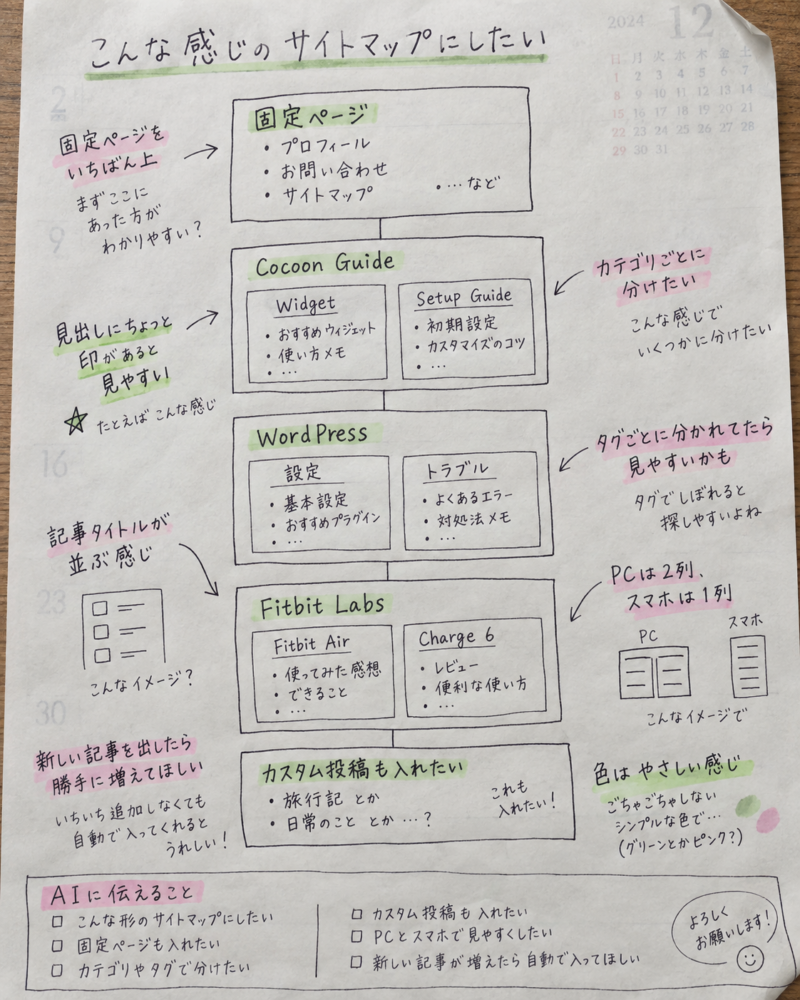 こんな感じのサイトマップにしたい
2024 12
日 月 火 水 木 金 土
1 2 3 4 5 6 7
8 9 10 11 12 13 14
15 16 17 18 19 20 21
22 23 24 25 26 27 28
29 30 31
2
9
16
23
30
固定ページを
いちばん上
まずここに
あった方が
わかりやすい？
固定ページ
・プロフィール
・お問い合わせ
・サイトマップ
・… など
見出しにちょっと
印があると
見やすい!
☆ たとえば こんな感じ
Cocoon Guide
Widget
・おすすめウィジェット
・使い方メモ
・…
Setup Guide
・初期設定
・カスタマイズのコツ
・…
カテゴリごとに
分けたい
こんな感じで
いくつかに分けたい
WordPress
設定
・基本設定
・おすすめプラグイン
・…
トラブル
・よくあるエラー
・対処法メモ
・…
タグごとに分かれてたら
見やすいかも
タグでしぼれると
探しやすいよね
記事タイトルが
並ぶ感じ
こんなイメージ？
Fitbit Labs
Fitbit Air
・使ってみた感想
・できること
・…
Charge 6
・レビュー
・便利な使い方
・…
PCは2列、
スマホは1列
PC
スマホ
こんなイメージで
新しい記事を出したら
勝手に増えてほしい
いちいち追加しなくても
自動で入ってくれると
うれしい！
カスタム投稿も入れたい
・旅行記 とか
・日常のこと とか …？
これも
入れたい！
色は やさしい感じ
ごちゃごちゃしない
シンプルな色で…
(グリーンとかピンク？)
AIに伝えること
□ こんな形のサイトマップにしたい
□ 固定ページも入れたい
□ カテゴリやタグで分けたい
□ カスタム投稿も入れたい
□ PCとスマホで見やすくしたい
□ 新しい記事が増えたら自動で入ってほしい
よろしく
お願いします！